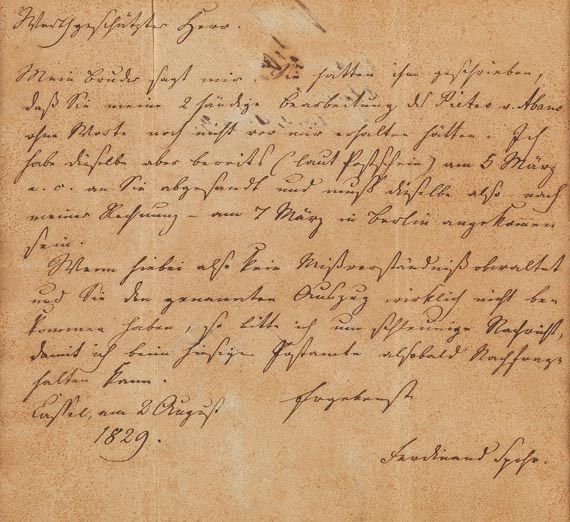 Werthgeschätzter Herr.
Mein Bruder sagt mir, Sie hätten ihm geschrieben,
daß Sie meine 2 händige Bearbeitung des Pietro v. Abano
ohne Worte noch nicht von mir erhalten hätten. Ich
habe dieselbe aber bereits (laut Postschein) am 5 März
a. c. an Sie abgesandt und muß dieselbe also – nach
meiner Rechnung – am 7 März in Berlin angekommen
sein.
Wenn hiebei also kein Mißverständniß obwaltet
und Sie den genannten Auszug wirklich nicht be-
kommen haben, so bitte ich um schleunige Nachricht,
damit ich beim hiesigen Postamte alsobald Nachfrage
halten kann.
Cassel, am 2 August
1829.
Ergebenst
Ferdinand Spohr.